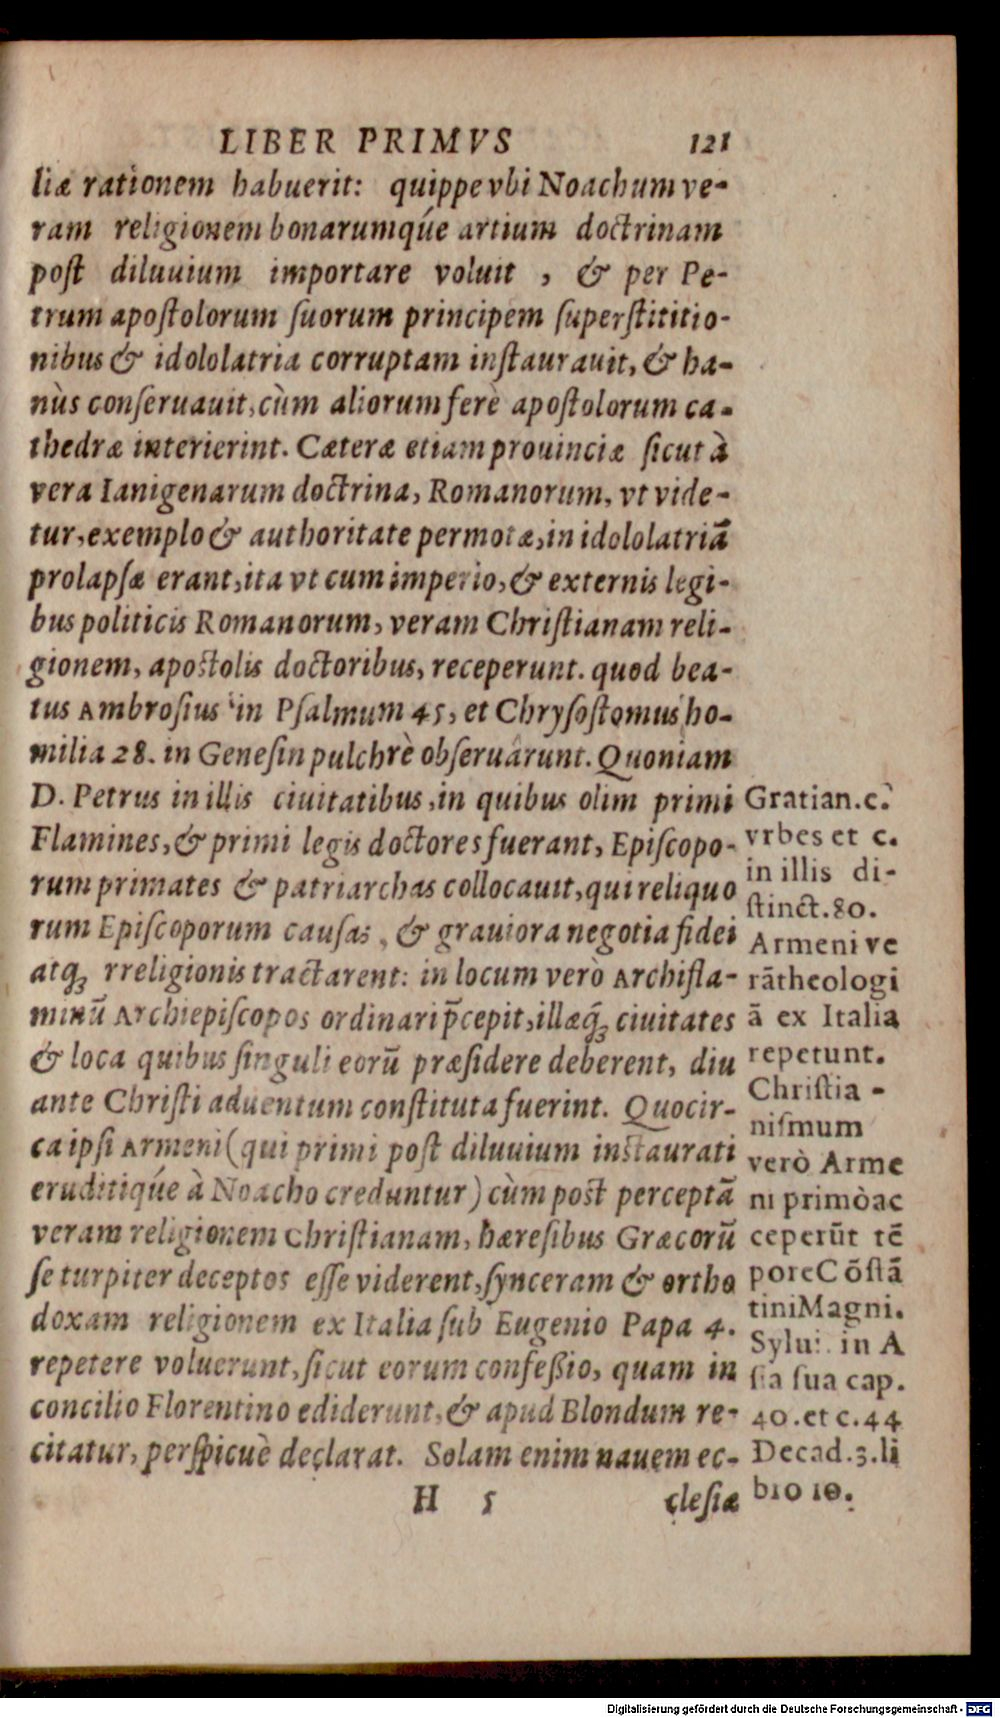 LIBER PRIMVS 121
liæ rationem habuerit: quippe vbi Noachum ve-
ram religionem bonarumq́ue artium doctrinam
poſt diluuium importare voluit , & per Pe-
trum apoſtolorum ſuorum principem ſuperſtititio-
nibus & idololatria corruptam inſtaurauit, & ha-
nùs conſeruauit, cùm aliorum ferè apoſtolorum ca-
thedræ interierint. Cæteræ etiam prouinciæ ſicut à
vera Ianigenarum doctrina, Romanorum, vt vide-
tur, exemplo & authoritate permotæ, in idololatriã
prolapſæ erant, ita vt cum imperio, & externis legi-
bus politicis Romanorum, veram Chriſtianam reli-
gionem, apostolis doctoribus, receperunt. quod bea-
tus Ambroſius in Pſalmum 45, et Chryſoſtomus ho-
milia 28. in Geneſin pulchrè obſeruârunt. Quoniam
D. Petrus in illis ciuitatibus, in quibus olim primi
Flamines, & primi legis doctores fuerant, Epiſcopo-
rum primates & patriarchas collocauit, qui reliquo
rum Epiſcoporum cauſas, & grauiora negotia fidei
atqꝫ rreligionis tractarent: in locum verò Archifla-
minũ Archiepiſcopos ordinari p̃cepit, illæqꝫ́ ciuitates
& loca quibus ſinguli eorũ præſidere deberent, diu
ante Chriſti aduentum conſtituta fuerint. Quocir-
ca ipſi Armeni (qui primi poſt diluuium instaurati
eruditiq́ue à Noacho creduntur) cùm post perceptã
veram religionem Chriſtianam, hæreſibus Græcorũ
ſe turpiter deceptos eſſe viderent, ſynceram & ortho
doxam religionem ex Italia ſub Eugenio Papa 4.
repetere voluerunt, ſicut eorum confeßio, quam in
concilio Florentino ediderunt, & apud Blondum re-
citatur, perſpicuè declarat. Solam enim nauem ec-
H 5 cleſiæ
Gratian. c.
vrbes et c.
in illis di-
ſtinct. 80.
Armeni ve
rã theologi
ã ex Italia
repetunt.
Chriſtia-
niſmum
verò Arme
ni primò ac
ceperũt tẽ
pore Cõſtã
tini Magni.
Sylui. in A
ſia ſua cap.
40. et c. 44
Decad. 3. li
bro 10.
Digitalisierung gefördert durch die Deutsche Forschungsgemeinschaft - DFG